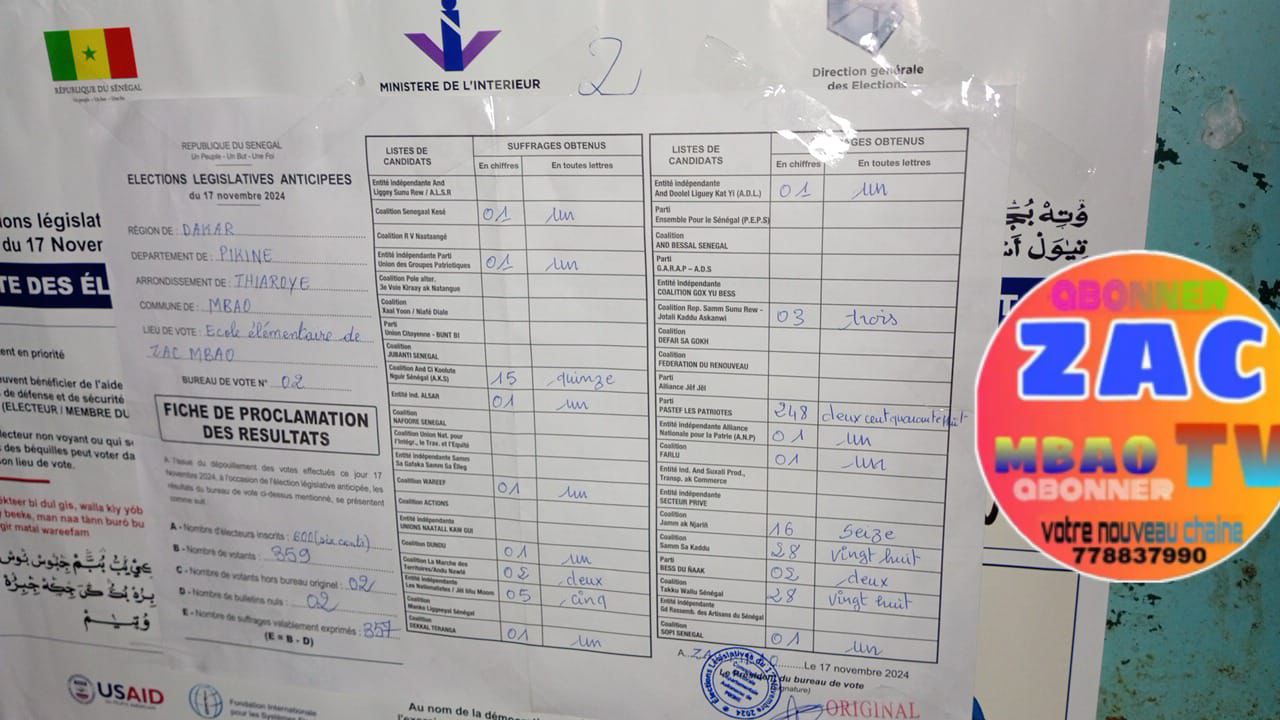 RÉPUBLIQUE DU SÉNÉGAL
MINISTERE DE L'INTERIEUR
2
Direction générale
des Elections
REPUBLIQUE DU SENEGAL
Un Peuple - Un But - Une Foi
ELECTIONS LEGISLATIVES ANTICIPEES
du 17 novembre 2024
RÉGION DE : DAKAR
DEPARTEMENT DE : PIKINE
ARRONDISSEMENT DE : THIAROYE
COMMUNE DE : MBAO
LIEU DE VOTE : Ecole élémentaire de
ZAC MBAO
BUREAU DE VOTE N° 02
FICHE DE PROCLAMATION
DES RESULTATS
A l'issue du dépouillement des votes effectués ce jour 17
Novembre 2024, à l'occasion de l'élection législative anticipée, les
résultats du bureau de vote ci-dessus mentionné, se présentent
comme suit
A - Nombre d'électeurs inscrits : 600 (six cents)
B - Nombre de votants : 359
C - Nombre de votants hors bureau originel : 02
D - Nombre de bulletins nuls : 02
E - Nombre de suffrages valablement exprimés : 357
(E = B - D)
LISTES DE CANDIDATS SUFFRAGES OBTENUS
En chiffres En toutes lettres
Entité indépendante And
Liggey Sunu Rew / A.L.S.R
Coalition Senegaal Kesé 01 un
Coalition R V Naataangé
Entité indépendante Parti
Union des Groupes Patriotiques 01 un
Coalition Pole alter.
3e Voie Kiraay ak Natangue
Coalition
Xaal Yoon / Niafé Diale
Parti
Union Citoyenne - BUNT BI
Coalition
JUBANTI SENEGAL
Coalition And Ci Koolute
Nguir Sénégal (A.K.S) 15 quinze
Entité ind. ALSAR 01 un
Coalition
NAFOORE SENEGAL
Coalition Union Nat. pour
l'Intégr., le Trav. et l'Equité
Entité indépendante Samm
Sa Gafaka Samm Sa Ëlleg
Coalition WAREEF 01 un
Coalition ACTIONS
Entité indépendante
UNIONS NAATALL KAW GUI
Coalition DUNDU 01 un
Coalition La Marche des
Territoires/Andu Nawlé 02 deux
Entité indépendante
Les Nationalistes / Jëf Idiu Moom 05 cinq
Coalition
Manko Liggeeyal Sénégal
Coalition
DEKKAL TERANGA 01 un
LISTES DE CANDIDATS AGES OBTENUS
En chiffres En toutes lettres
Entité indépendante
And Doolel Liguey Kat Yi (A.D.L.) 01 un
Parti
Ensemble Pour le Sénégal (P.E.P.S)
Coalition
AND BESSAL SENEGAL
Parti
G.A.R.A.P - A.D.S
Entité indépendante
COALITION GOX YU BESS
Coalition Rep. Samm Sunu Rew -
Jotali Kaddu Askanwi 03 trois
Coalition
DEFAR SA GOKH
Coalition
FEDERATION DU RENOUVEAU
Parti
Alliance Jëf Jël
Parti
PASTEF LES PATRIOTES 248 deux cent quarante huit
Entité indépendante Alliance
Nationale pour la Patrie (A.N.P) 01 un
Coalition
FARLU 01 un
Entité Ind. And Suxali Prod.,
Transp. ak Commerce
Entité indépendante
SECTEUR PRIVE
Coalition
Jamm ak Njariñ 16 seize
Coalition
Samm Sa Kaddu 28 vingt huit
Parti
BESS DU ÑAAK 02 deux
Coalition
Takku Wallu Sénégal 28 vingt huit
Entité indépendante
Gd Rassemb. des Artisans du Sénégal
Coalition
SOPI SENEGAL 01 un
Le 17 novembre 2024
Le Président du bureau de vote
ORIGINAL
ions législat
du 17 Nover
TE DES ÉL
ent en priorité
uvent bénéficier de l'aide
de défense et de sécurité
(ELECTEUR / MEMBRE DU
lecteur non voyant ou qui se
des béquilles peut voter da
on lieu de vote.
USAID
Fondation Internationale
Au nom de la démo
ABONNER
ZAC
MBAO TV
ABONNER
votre nouveau chaine
778837990